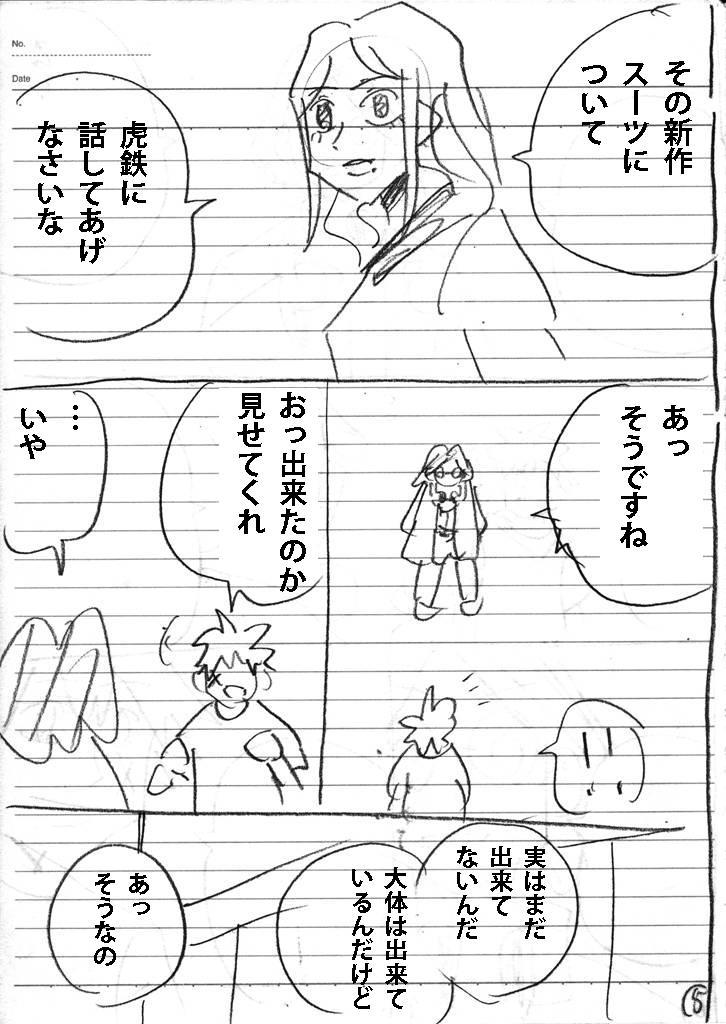 No.
Date
その新作
スーツに
ついて
虎鉄に
話してあげ
なさいな
あっ
そうですね
!!
おっ出来たのか
見せてくれ
…
いや
実はまだ
出来て
ないんだ
大体は出来て
いるんだけど
あっ
そうなの
⑤